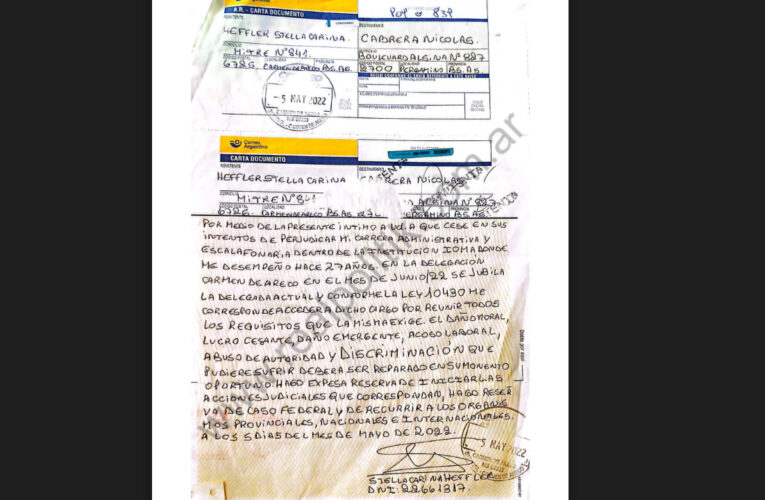 A.R. - CARTA DOCUMENTO
REMITENTE
HEFFLER STELLA CARINA.
DOMICILIO
MITRE N° 841.
CÓDIGO POSTAL LOCALIDAD PROVINCIA
6725 CARMEN DE ARECO BS.AS.
5 MAY 2022
DESTINATARIO
CABRERA NICOLAS.
DOMICILIO
BOULEVARD ALSINA N° 827
CÓDIGO POSTAL LOCALIDAD PROVINCIA
2700 PERGAMINO BS.AS.
Correo
Argentino
CARTA DOCUMENTO
REMITENTE
HEFFLER STELLA CARINA
DOMICILIO
MITRE N° 841
6725 CARMEN DE ARECO BS.AS.
DESTINATARIO
CABRERA NICOLAS.
ALSINA N° 827
PERGAMINO BS.AS.
POR MEDIO DE LA PRESENTE INTIMO A UD. A QUE CESE EN SUS
INTENTOS DE PERJUDICAR MI CARRERA ADMINISTRATIVA Y
ESCALAFONARIA DENTRO DE LA INSTITUCION IOMA DONDE
ME DESEMPEÑO HACE 27 AÑOS. EN LA DELEGACION
CARMEN DE ARECO EN EL MES DE JUNIO/22 SE JUBILA
LA DELEGADA ACTUAL Y CONFORME LA LEY 10430 ME
CORRESPONDE ACCEDER A DICHO CARGO POR REUNIR TODOS
LOS REQUISITOS QUE LA MISMA EXIGE. EL DAÑO MORAL,
LUCRO CESANTE, DAÑO EMERGENTE, ACOSO LABORAL,
ABUSO DE AUTORIDAD Y DISCRIMINACION QUE
PUDIERE SUFRIR DEBERA SER REPARADO EN SU MONENTO
OPORTUNO. HAGO EXPESA RESERVA DE INICIAR LAS
ACCIONES JUDICIALES QUE CORRESPONDAN, HAGO RESER
VA DE CASO FEDERAL Y DE RECURRIR A LOS ORGANIS
MOS PROVINCIALES, NACIONALES E INTERNACIONALES.
A LOS 5 DIAS DEL MES DE MAYO DE 2022.
5 MAY 2022
STELLA CARINA HEFFLER
DNI: 22661317.
www.realpolitik.com.ar